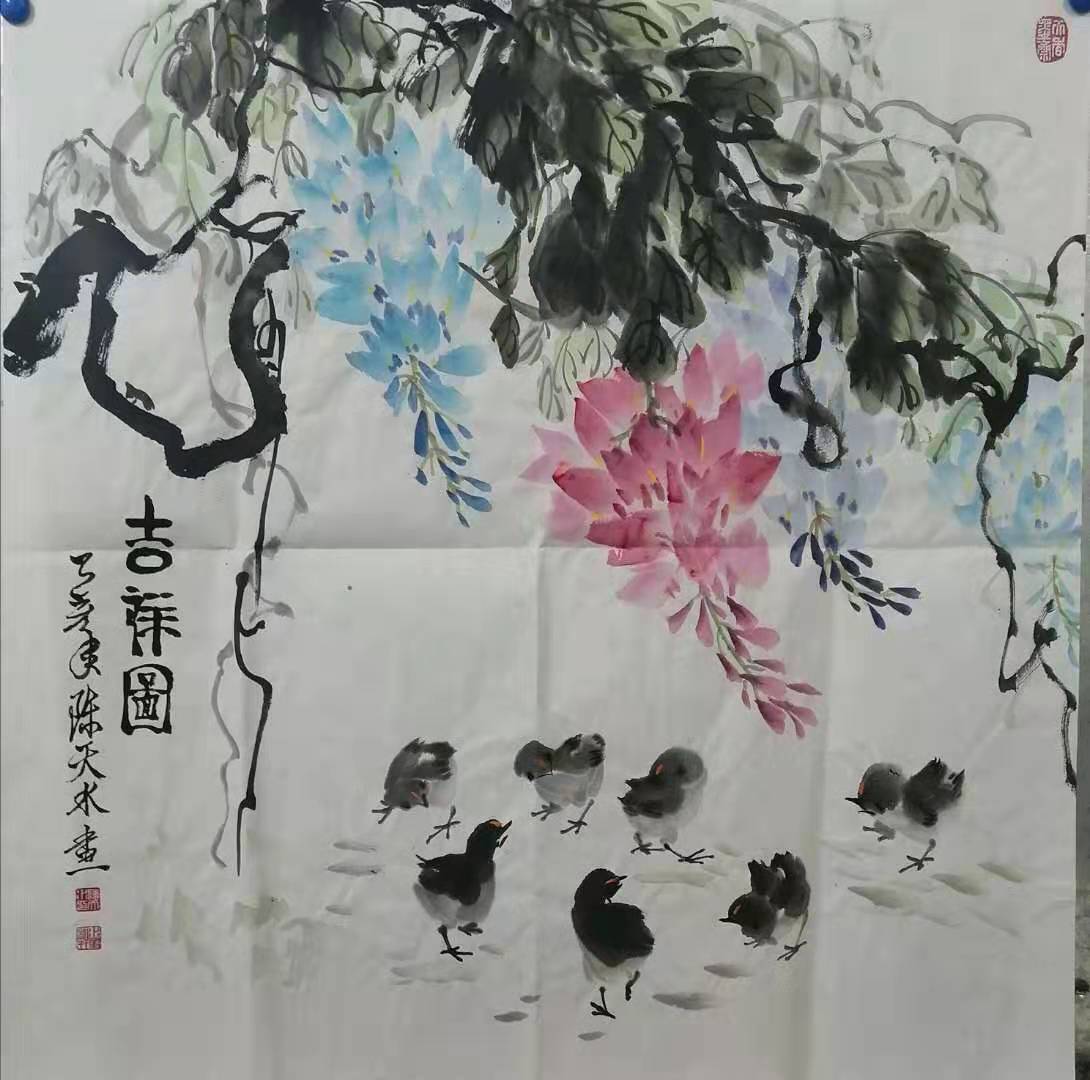 吉祥圖
己亥年陈天水畫